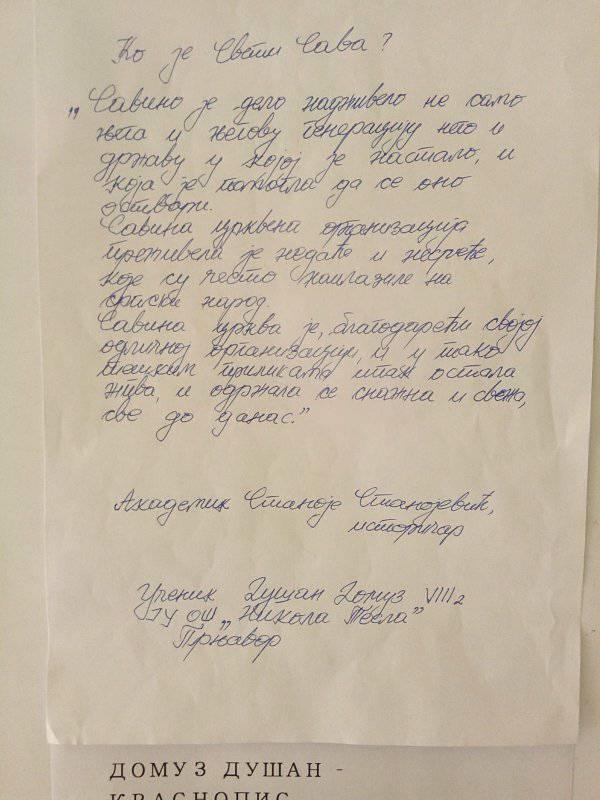 Ко је Свети Сава?
„Савино је дело надживело не само
њега и његову генерацију него и
државу у којој је настало, и
која је помогла да се оно
оствари.
Савина црквена организација
преживела је недаће и несреће,
које су често наилазиле на
српски народ.
Савина црква је, благодарећи својој
одличној организацији, и у тако
тешким приликама ипак остала
жива, и одржала се снажна и свежа,
све до данас.”
Академик Станоје Станојевић,
историчар
Ученик Душан Домуз VIII2
ЈУ ОШ „Никола Тесла”
Прњавор
ДОМУЗ ДУШАН -
КРАСНОПИС